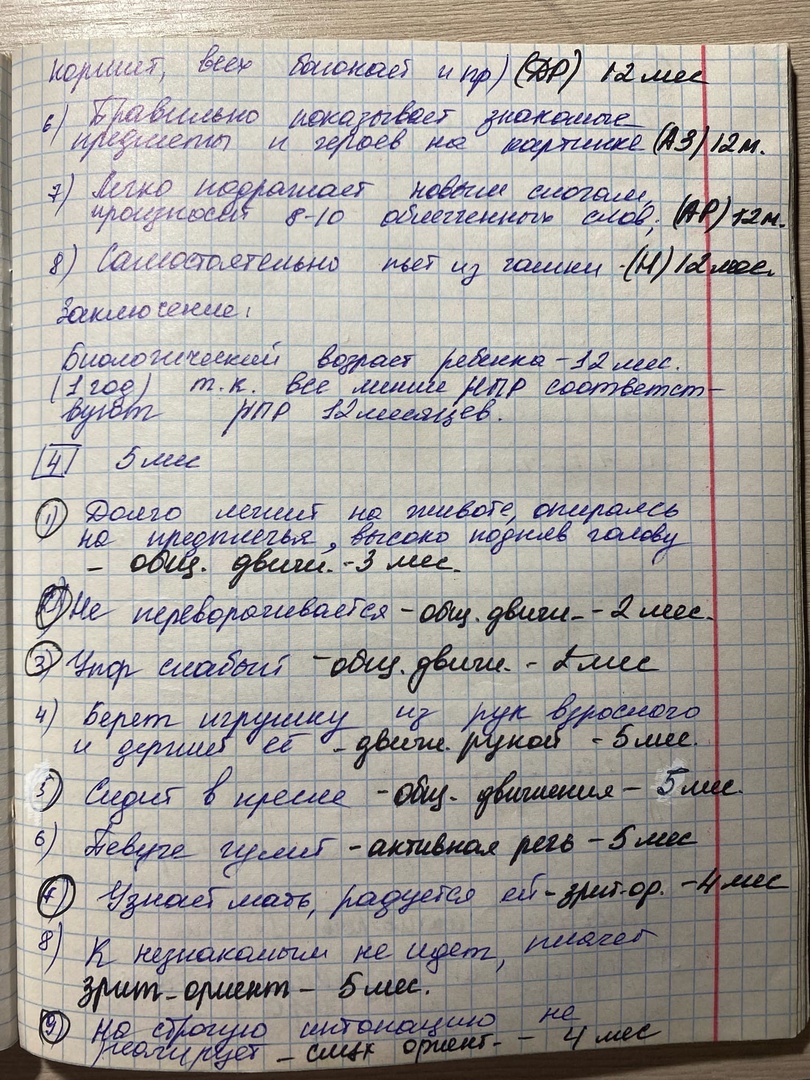 кормит, всех баюкает и пр) (ДР) 12 мес
6) Правильно показывает знакомые
предметы и героев на картинке (АЗ) 12 м.
7) Легко подражает новым слогам,
произносит 8-10 облегченных слов; (АР) 12 м.
8) Самостоятельно пьет из чашки - (Н) 12 мес.
Заключение:
Биологический возраст ребенка - 12 мес.
(1 год) т.к. все линии НПР соответст-
вуют НПР 12 месяцев.
4 5 мес
1) Долго лежит на животе, опираясь
на предплечья, высоко подняв голову
- общ. движ. - 3 мес.
2) Не переворачивается - общ. движ. - 2 мес.
3) Упор слабый - общ. движ. - мес
4) Берет игрушку из рук взрослого
и держит её - движ. рукой - 5 мес.
5) Сидит в кресле - общ. движения - 5 мес.
6) Певуче гулит - активная речь - 5 мес
7) Узнает мать, радуется ей - зрит. ор. - 4 мес
8) К незнакомым не идет, плачет
зрит - ориент - 5 мес.
9) На строгую интонацию не
реагирует - слух ориент. - 4 мес